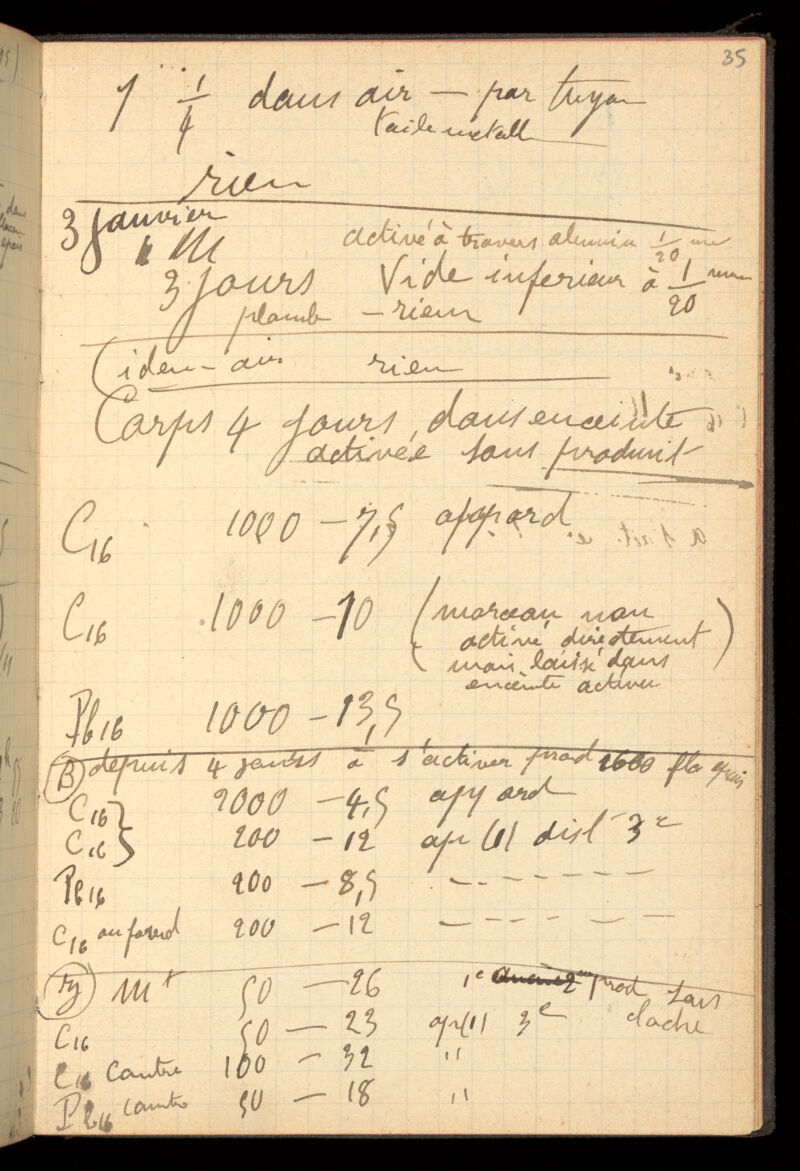 35
1 1/4 dans air — par tuyau
toile metall
rien
3 Janvier
M activé à travers alumin 1/20 mm
3 jours Vide inferieur à 1/20 mm
plomb — rien
(idem — air rien
Corps 4 jours, dans enceinte
activée sans produit
C16 1000 — 7,5 app ord
C16 1000 — 10 (morceau non
activé directement
mais laissé dans
enceinte activée)
Pb16 1000 — 13,5
(B) depuis 4 jours à s'activer prod 1600
C16 } 2000 — 4,5 app ord
C16 } 200 — 12 ap (1) dist 3e
Pb16 200 — 8,5 — - - - - - -
C16 au fond 200 — 12 — - - - - - -
50 — 26 prod sans
cloche
C16 50 — 23 ap(1) 3e
C16 contre 100 — 32 "
Pb16 contre 50 — 18 "